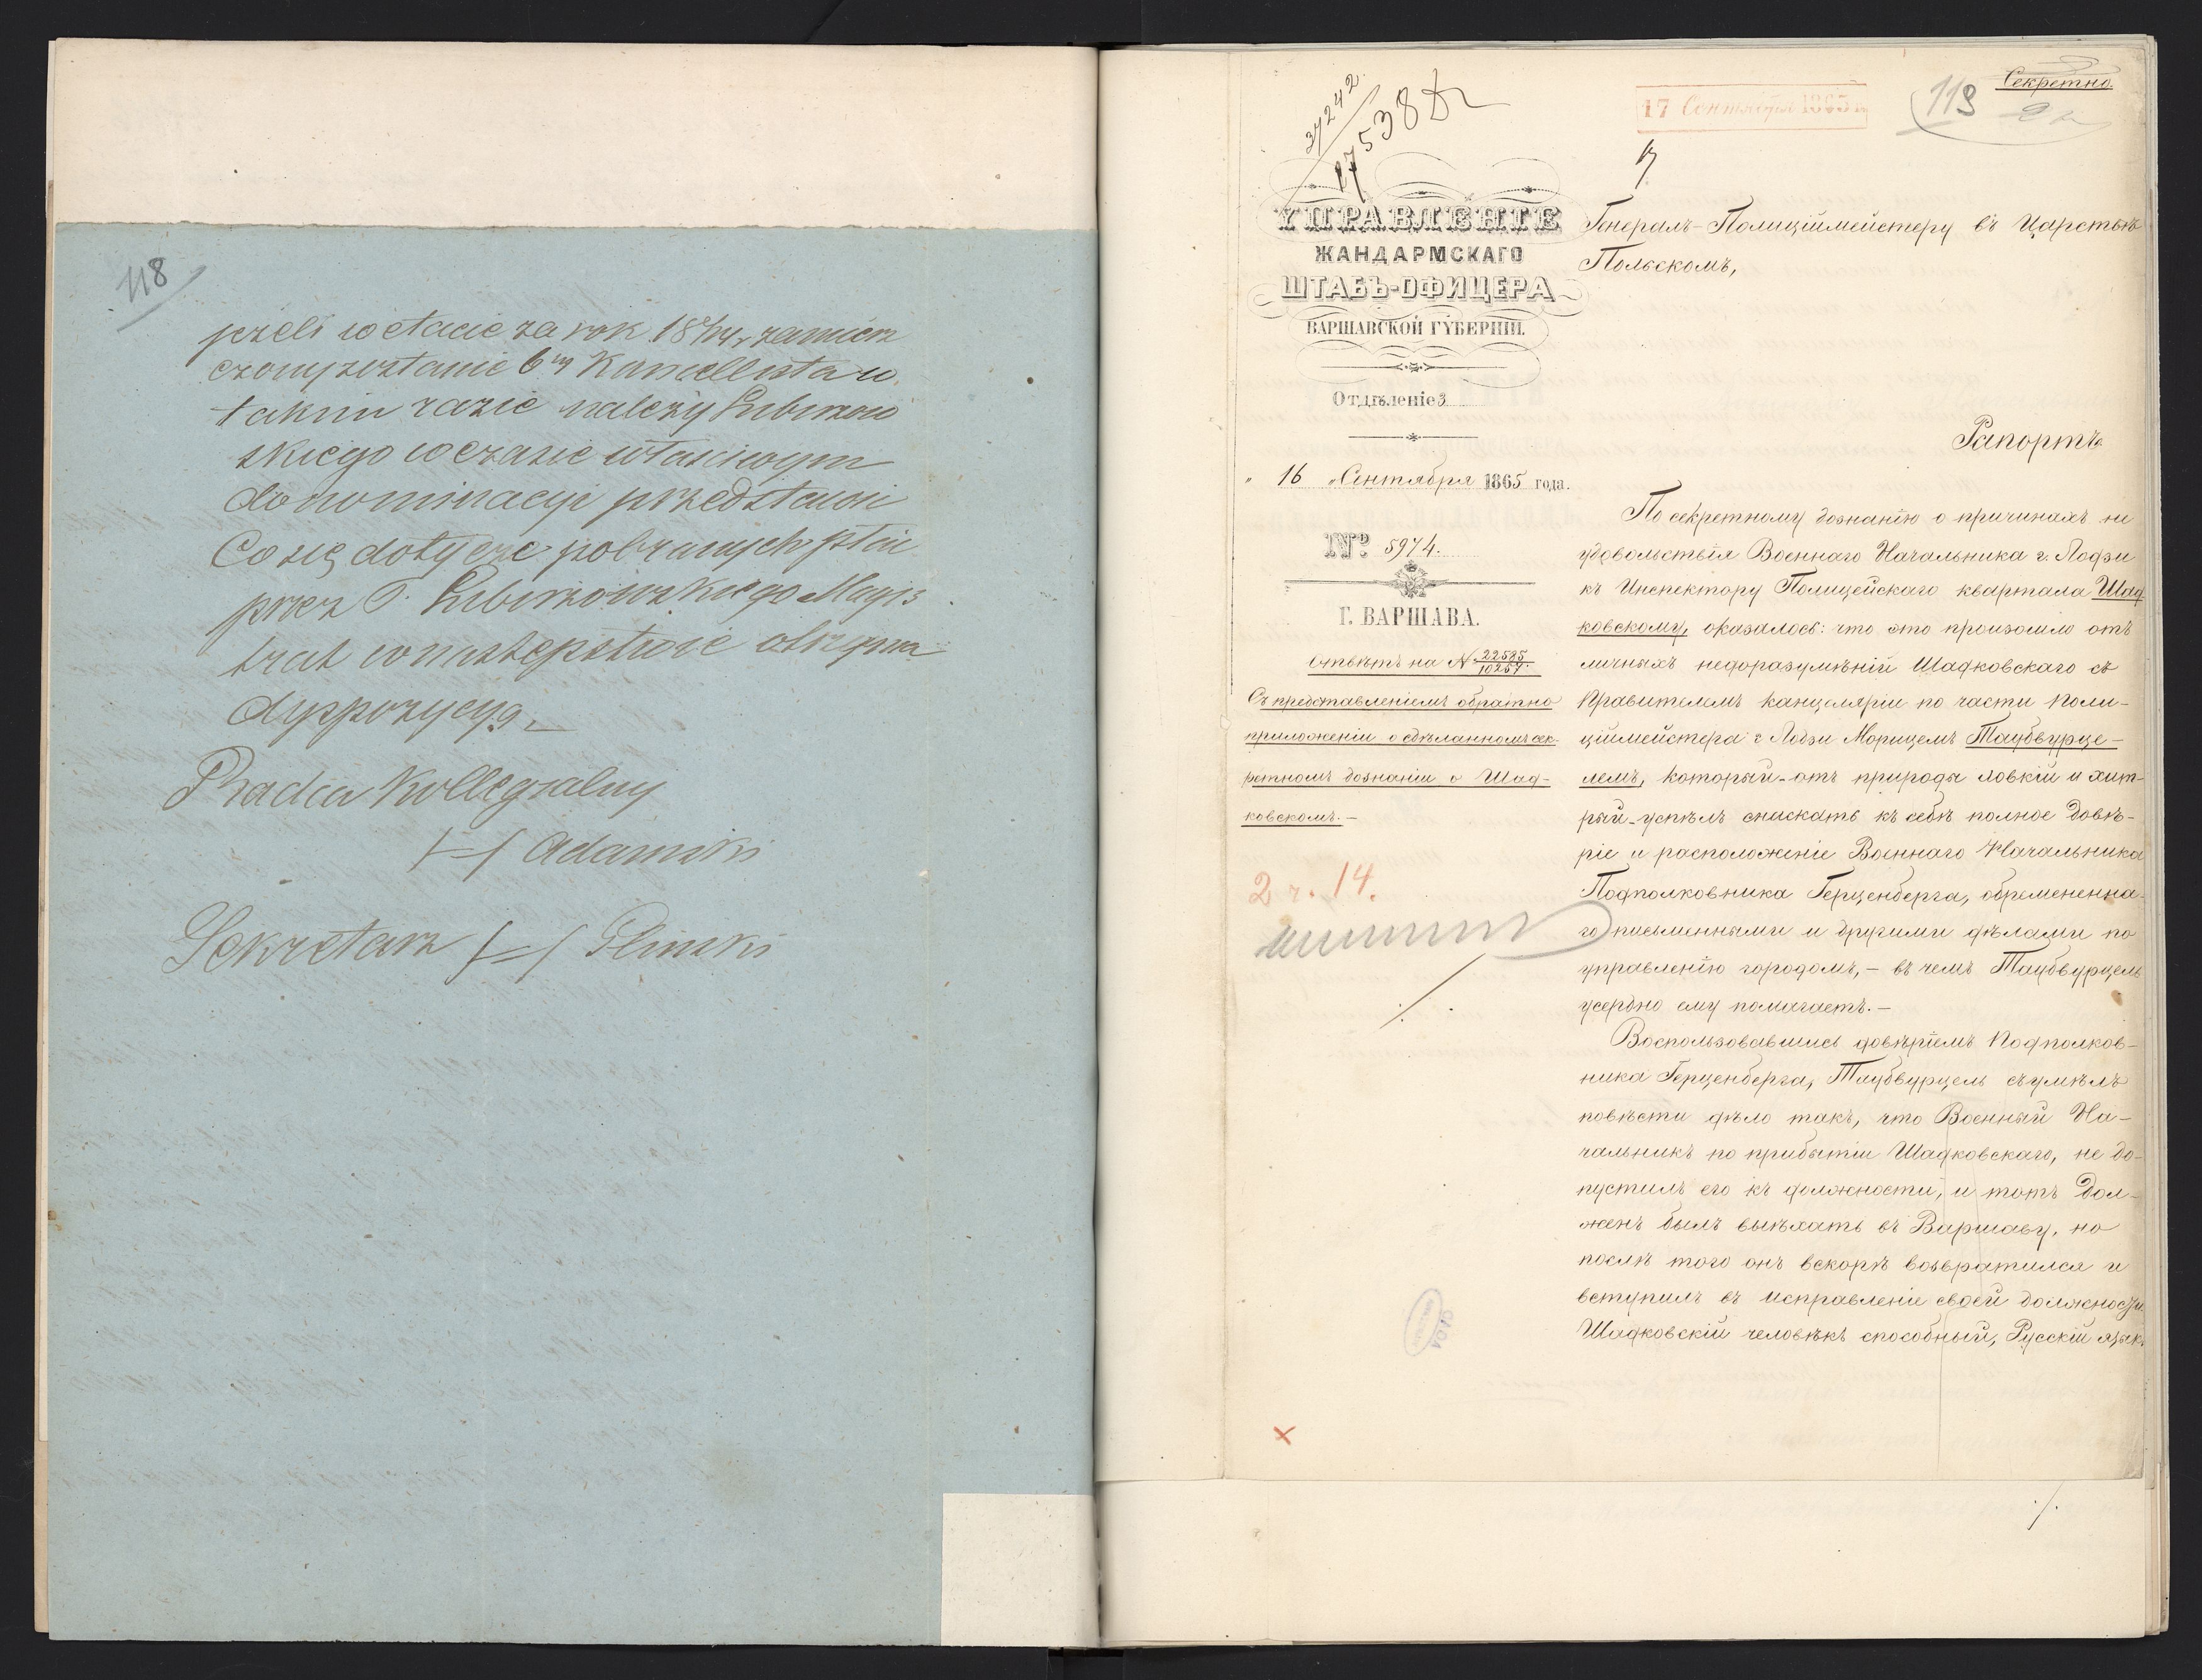 118
jeżeli w etacie za rok zamiesz
czony zostanie 6ty Kancellista w
takim razie należy Lubiszow
skiego w czasie właściwym
do nominacyi przedstawi
Co się dotyczy pobranych płac
przez P. Lubiszowskiego Magis
trat w następstwie otrzyma
dyspozycyą
Radca Kollegialny
/=/ Adamski
Sekretarz /=/ Glinski
Секретно.
119
17 Сентября 1865
37242
17538
УПРАВЛЕНІЕ
ЖАНДАРМСКАГО
ШТАБЪ-ОФИЦЕРА
ВАРШАВСКОЙ ГУБЕРНІИ.
Отдѣленіе 3
„ 16 „ Сентября 1865 года.
№ 5974.
Г. ВАРШАВА.
Отвѣтъ на № 22585/10257.
Съ представленіемъ обратно
приложеній о сдѣланномъ сек-
ретномъ дознаніи о Шад-
ковскомъ.—
2 ч. 14.
Генералъ-Полиціймейстеру въ Царствѣ
Польскомъ,
Рапортъ
По секретному дознанію о причинахъ не
удовольствія Военнаго Начальника г. Лодзи
къ Инспектору Полицейскаго квартала Шад
ковскому, оказалось: что это произошло отъ
личныхъ недоразумѣній Шадковскаго съ
Правителемъ канцеляріи по части Поли-
ціймейстера г. Лодзи Морицемъ Таубвурце-
лемъ, который-отъ природы ловкій и хит-
рый-успѣлъ снискать къ себѣ полное довѣ-
ріе и расположеніе Военнаго Начальника
Подполковника Герценберга, обремененна-
го письменными и другими дѣлами по
управленію городомъ,— въ чемъ Таубвурцель
усердно ему помагаетъ.—
Воспользовавшись довѣріемъ Подполков-
ника Герценберга, Таубвурцель съумѣлъ
повѣсти дѣло такъ, что Военный На-
чальникъ по прибытіи Шадковскаго, не до-
пустилъ его къ должности, и тотъ дол-
женъ былъ выѣхать въ Варшаву, но
послѣ того онъ вскорѣ возвратился и
вступилъ въ исправленіе своей должности
Шадковскій человѣкъ способный, Русскій языкъ
./.